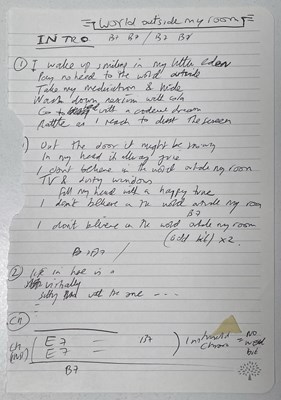 World outside my room
INTRO B7 B7 / B7 B7
① I wake up smiling in my little eden
Pay no heed to the world outside
Take my medication & hide
Wash down valium with cola
Go to with a codeine dream
Rattle as I reach to dust the screen
Out the door it might be raining
In my head it's always fine
I don't believe in the world outside my room
TV & dirty windows
fill my head with a happy tune
I don't believe in the world outside my room
B7
I don't believe in the world outside my room
(add bit) x2
B7 /
② Life in here is a
virtually
with the one ---
-
CH
CH E7 = B7 ) Instrumental = NO
E7 = Chorus word
B7 bit